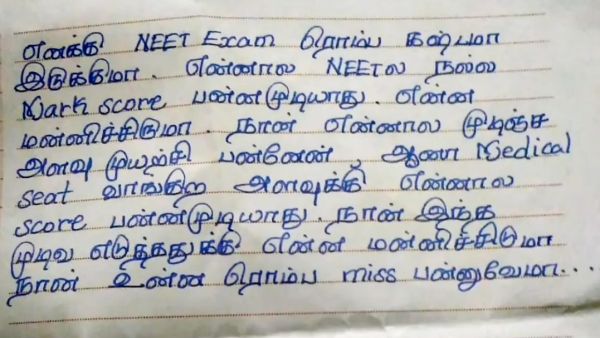 எனக்கு NEET Exam ரொம்ப கஷ்டமா
இருக்குமா. என்னால NEETல நல்ல
Mark score பண்ணமுடியாது. என்ன
மன்னிச்சிடுமா. நான் என்னால முடிஞ்ச
அளவு முயற்சி பண்னேன், ஆனா Medical
seat வாங்குற அளவுக்கு என்னால
score பண்ணமுடியாது. நான் இந்த
முடிவ எடுத்ததுக்கு என்ன மன்னிச்சிடுமா
நான் உன்ன ரொம்ப miss பன்னுவேமா...